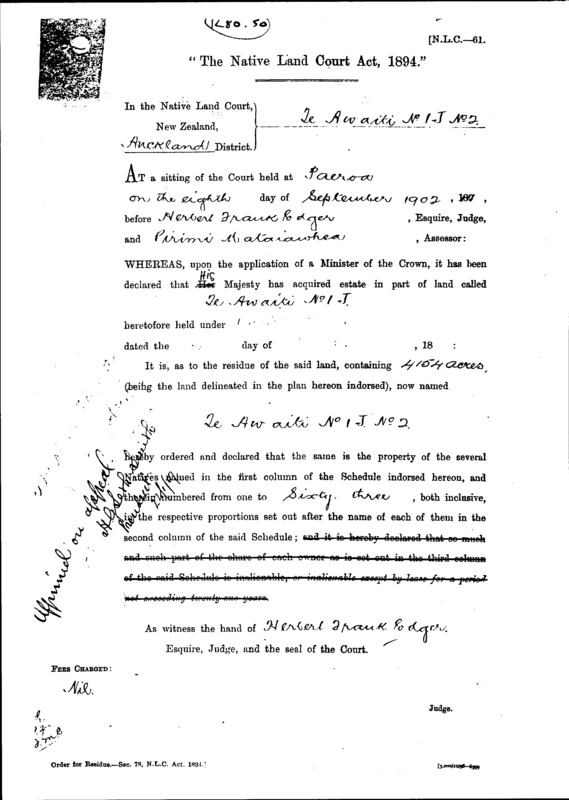 [N.L.C.—61.
"The Native Land Court Act, 1894."
In the Native Land Court,
New Zealand,
Auckland District.
Te Awaiti No 1-J No 2.
AT a sitting of the Court held at Paeroa
on, the eighth day of September 1902, 187,
before Herbert Frank Edger, Esquire, Judge,
and Pirimi Mataiawhea, Assessor:
WHEREAS, upon the application of a Minister of the Crown, it has been
declared that His Her Majesty has acquired estate in part of land called
Te Awaiti No 1-J.
heretofore held under
dated the day of , 18 :
It is, as to the residue of the said land, containing 4154 acres,
(being the land delineated in the plan hereon indorsed), now named
Te Awaiti No 1 J. No 2.
hereby ordered and declared that the same is the property of the several
Natives named in the first column of the Schedule indorsed hereon, and
therein numbered from one to Sixty. three, both inclusive,
in the respective proportions set out after the name of each of them in the
second column of the said Schedule; and it is hereby declared that so much
and such part of the share of each owner as is set out in the third column
of the said Schedule is inalienable, or inalienable except by lease for a period
not exceeding twenty-one years.
Affirmed on appeal.
As witness the hand of Herbert Frank Edger.
Esquire, Judge, and the seal of the Court.
FEES CHARGED:
Nil.
Judge.
Order for Residue.—Sec. 78, N.L.C. Act, 1894.]